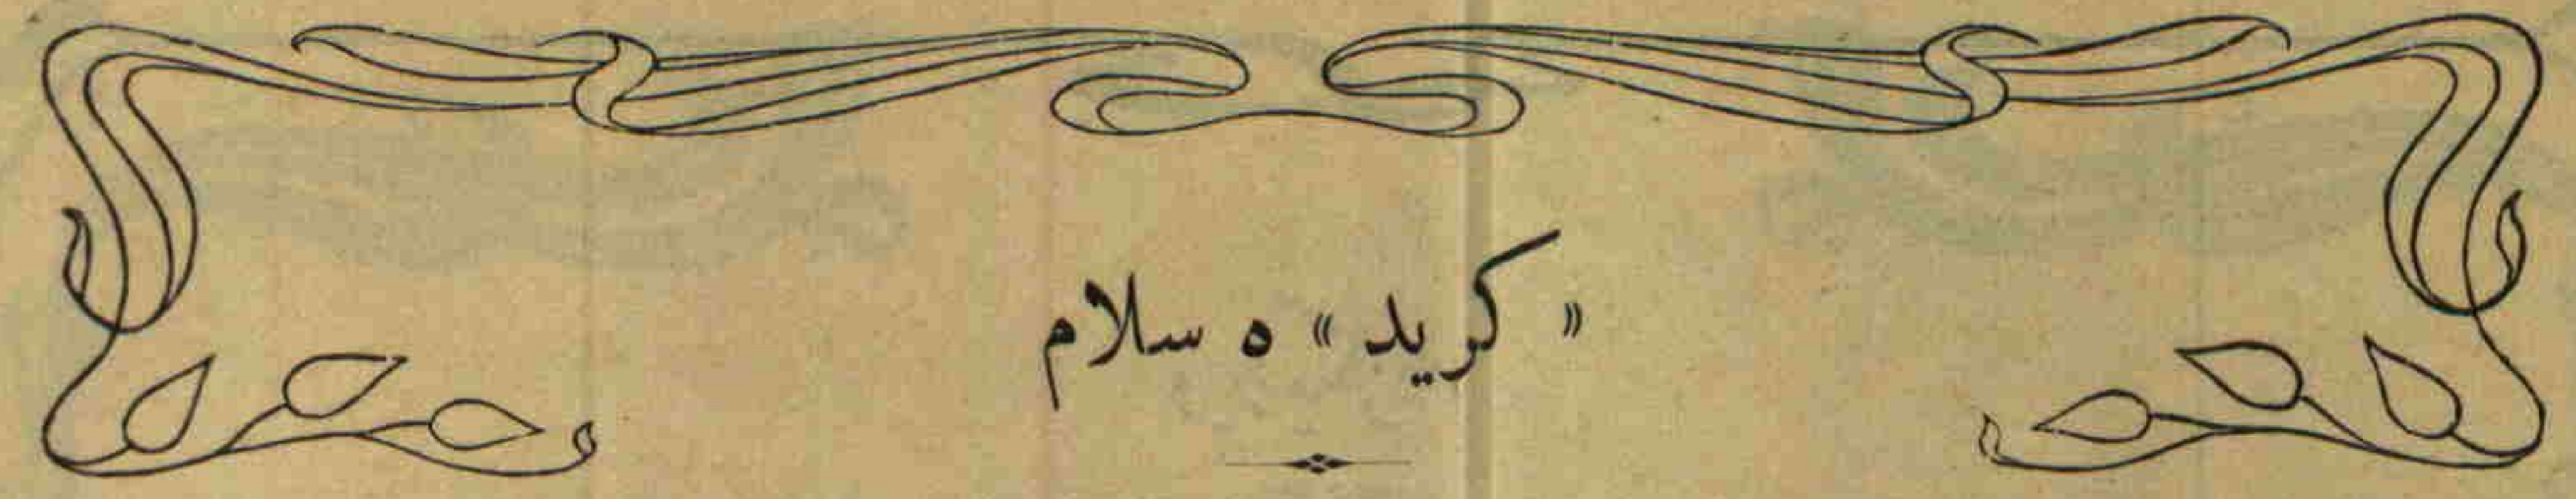 « كريد » ه سلام